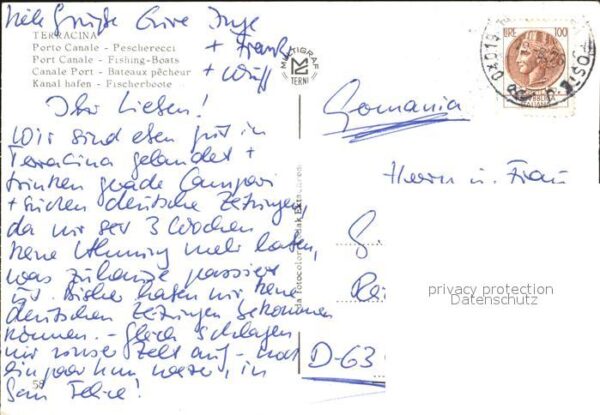 Viele Grüße Eure Inge
+ Frank
+ Wuff
TERRACINA
Porto Canale - Pescherecci
Port Canale - Fishing-Boats
Canale Port - Bateaux pêcheur
Kanal hafen - Fischerboote
MULTIGRAF
TERNI
LIRE 100
Ihr Lieben!
Wir sind eben gut in
Terracina gelandet +
trinken gerade Campari
+ suchen deutsche Zeitungen,
da wir seit 3 Wochen
keine Ahnung mehr haben,
was zuhause passiert
ist. Bisher haben wir keine
deutschen Zeitungen bekommen
können. - Gleich schlagen
wir unser Zelt auf - noch
ein paar km weiter, in
San Felice!
58
Germania
Herrn u. Frau
G
Rei
D-63
privacy protection
Datenschutz